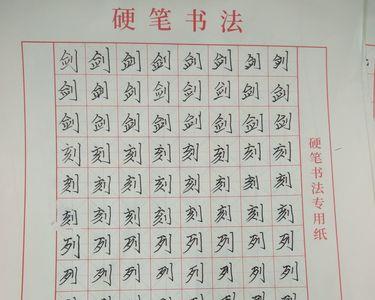 硬笔书法
剑剑剑剑剑剑剑剑
剑剑剑剑剑剑剑剑
剑剑剑剑剑剑剑剑
刻刻刻刻刻刻刻刻
刻刻刻刻刻刻刻刻
刻刻刻刻刻刻刻刻
列列列列列列列列
列列列列列列列列
硬笔书法专用纸